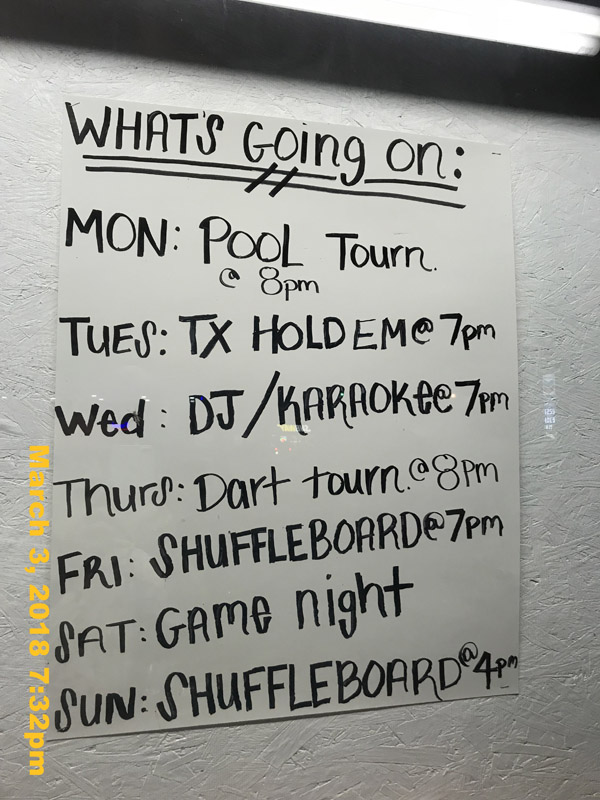 WHAT'S Going on:
MON: POOL Tourn.
@ 8pm
TUES: TX HOLD EM @ 7pm
Wed: DJ/KARAOKee@ 7pm
Thurs: Dart tourn.@8pm
FRI: SHUFFLEBOARD@7pm
SAT: GAMe night
SUN: SHUFFLEBOARD@4pm
March 3, 2018 7:32pm